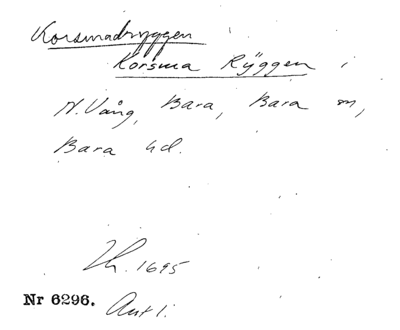 Korsmadsryggen
Korsma Rÿggen i
N. Vång, Bara, Bara sn,
Bara hd.
Lh. 1695
Nr 6296. Ant 1.